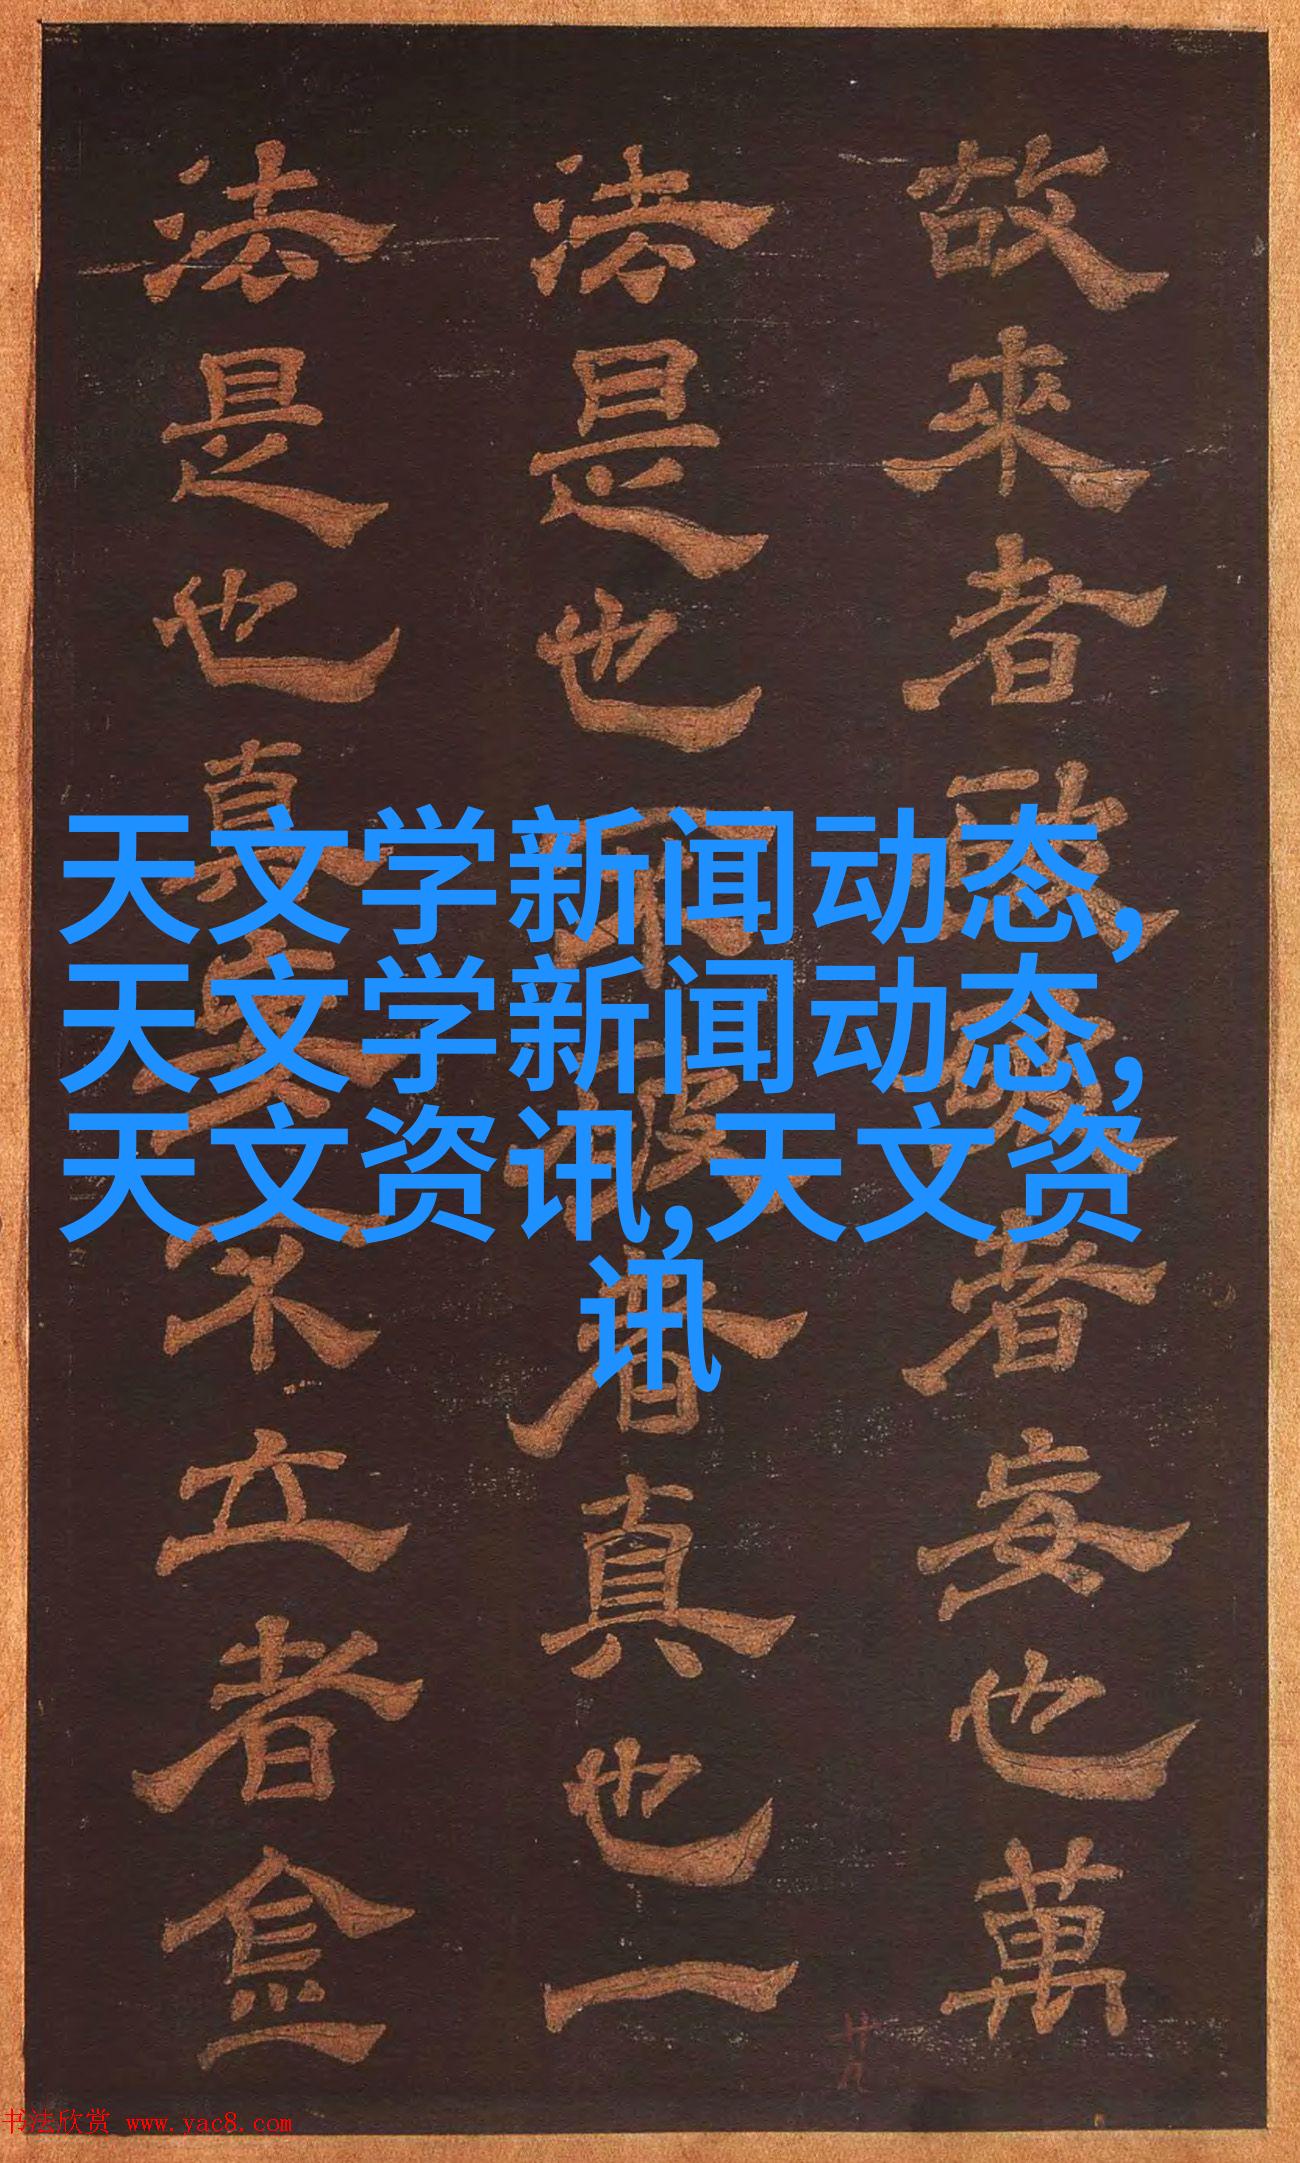 故來者者妄也萬
法是也不者真也一
法是也真不立者
天文学新闻动态,
天文学新闻动态,
天文资讯,天文资
讯
书法欣赏 www.yac8.com